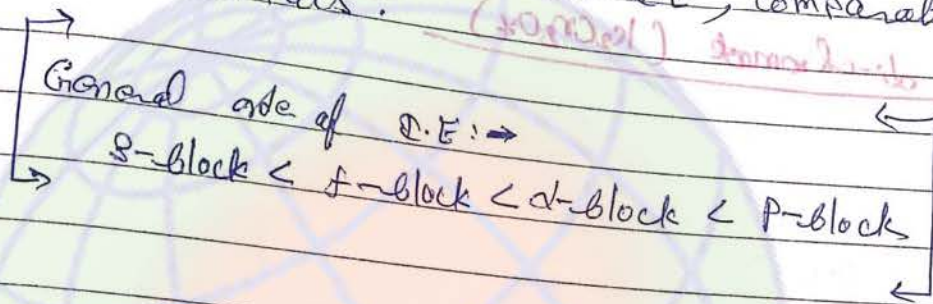 comparab
General orde of I.E :→
S-block < f-block < d-block < P-block